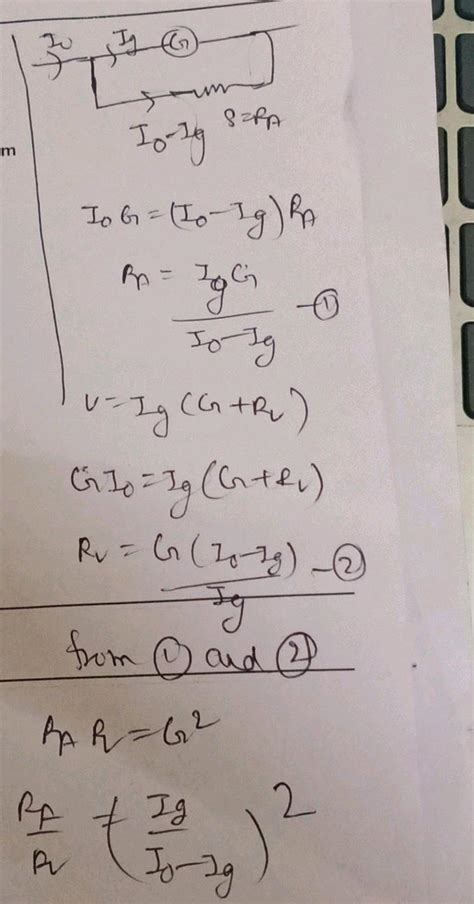 I₀ Ig G
I₀-Ig S=RA
m
I₀ G = (I₀-Ig) RA
RA = IgG / I₀-Ig -①
V = Ig (G+RV)
GI₀ = Ig (G+RV)
RV = G (I₀-Ig) / Ig -②
from ① and ②
RA RV = G²
RA / RV = (Ig / I₀-Ig)²